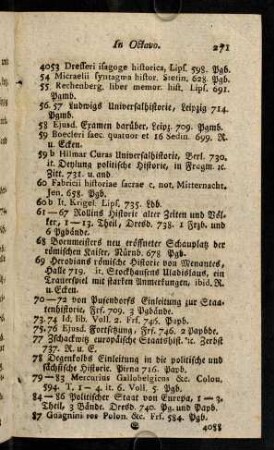 In Octavo. 271
4053 Dresseri isagoge historica, Lips. 598. Pgb.
54 Micraelii syntagma histor. Stetin. 628. Pgb.
55 Rechenberg. liber memor. hist. Lips. 691.
Pgmb.
56. 57 Ludwigs Universalhistorie, Leipzig 714.
Pgmb.
58 Ejusd. Examen darüber, Leipz. 709. Pgmb.
59 Boecleri saec. quatuor et 16 Sedin. 699. R.
u. Ecken.
59 b Hilmar Curas Universalhistorie, Berl. 730.
it. Deylung politische Historie, in Fragm. ic.
Zitt. 731. u. and
60 Fabricii historiae sacrae c. not. Mitternacht.
Jen. 658. Pgb.
60 b It. Krigel. Lips. 735. Ldb.
61—67 Rollins Historie alter Zeiten und Völ-
ker, 1—13. Theil, Dresd. 738. 1 Frzb. und
6 Pgbände.
68 Bornmeisters neu eröffneter Schauplatz der
römischen Kaiser, Nürnb. 678 Pgb.
69 Herodians römische Historie von Menantes,
Halle 719. it. Stockhausens Uladislaus, ein
Trauerspiel mit starken Anmerkungen, ibid. R.
u. Ecken.
70—72 von Pufendorfs Einleitung zur Staa-
tenhistorie, Frf. 709. 3 Pgbände.
73. 74 Id. lib. Voll. 2. Frf. 746. Papb.
75. 76 Ejusd. Fortsetzung, Frf. 746. 2 Papbde.
77 Zschackwitz europäische Staatshist. ic. Zerbst
737. R. u. E.
78 Degenkolbs Einleitung in die politische und
sächsische Historie. Pirna 716. Papb.
79—83 Mercurius Gallobelgicus &c. Colon.
594. T. 1—4. it. 6. Voll. 5 Pgb.
84—86 Politischer Staat von Europa, 1—3.
Theil, 3 Bände. Dresd. 740. Pg. und Papb.
87 Guagnini res Polon. &c. Frf. 584. Pgb.
4088